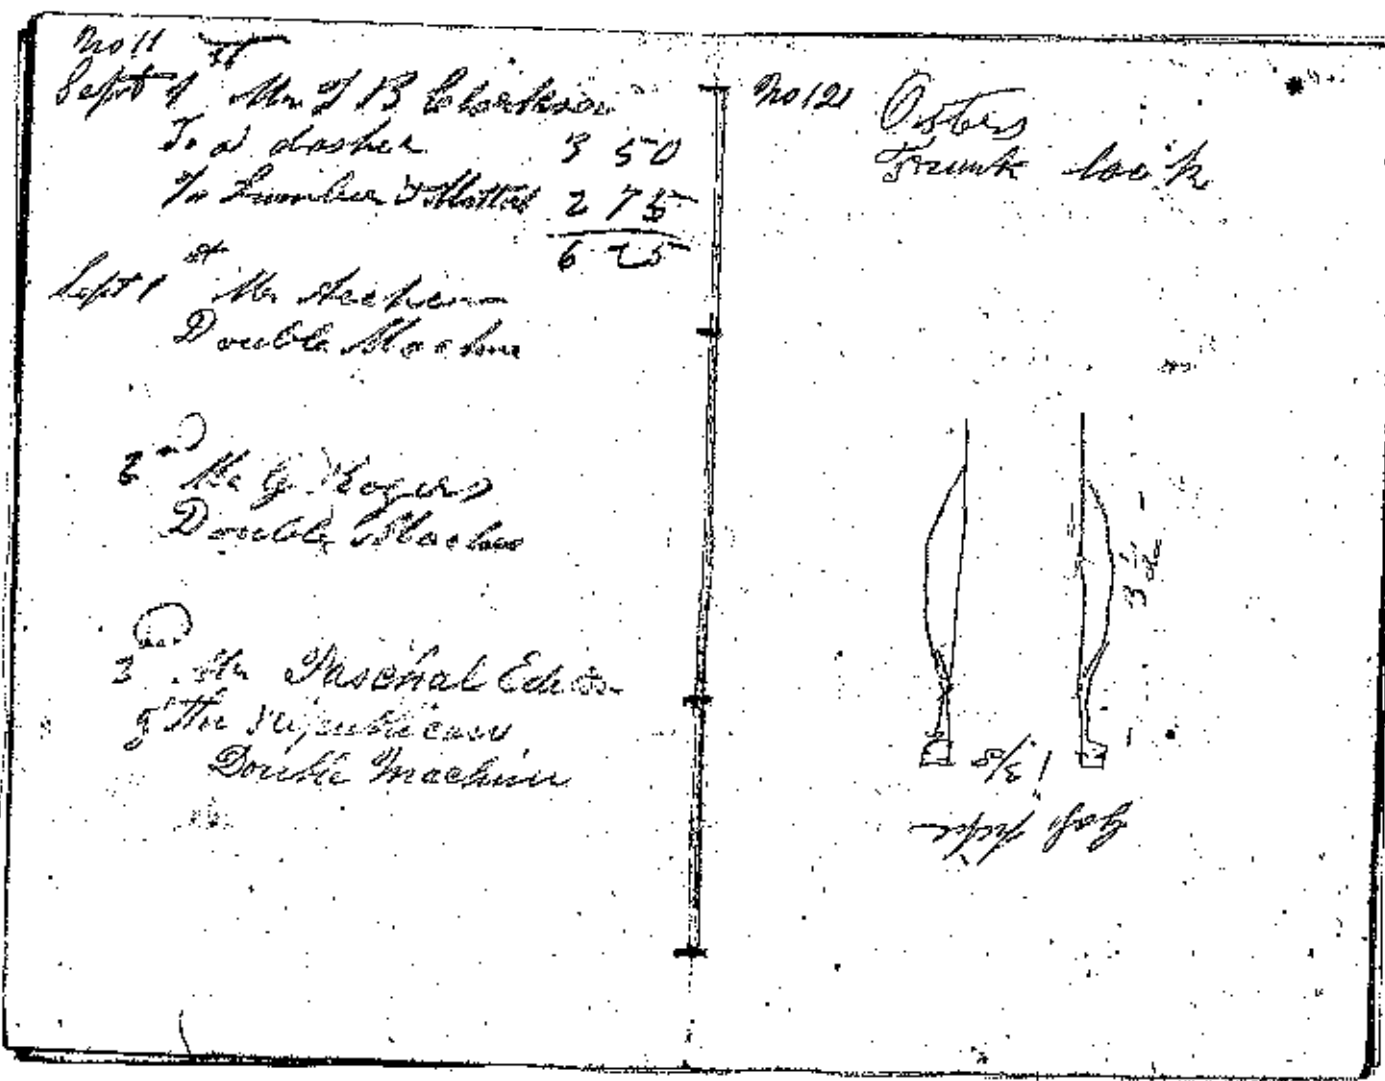 No 11
Sept 1st Mr J B Clarkson
To a dasher 3 50
To Lumber & 2 75
6 25
Sept 1st Mr
Double Machine
3 Mr G Rogers
Double Machine
3 Mr Paschal Editor
of the Republican
Double Machine
No 12
Trunk lock
3 1/2
1 3/8